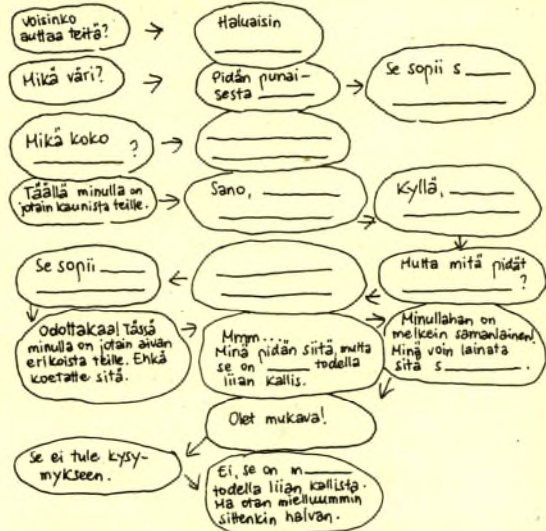 Voisinko
auttaa teitä?
Haluaisin
Mikä väri?
Pidän punai-
sesta
Se sopii s
Mikä koko
?
Täällä minulla on
jotain kaunista teille.
Sano,
Kyllä,
Se sopii
Mutta mitä pidät
?
Odottakaa! Tässä
minulla on jotain aivan
erikoista teille. Ehkä
koetatte sitä.
Mmm...
Minä pidän siitä, mutta
se on todella
liian kallis.
Minullahan on
melkein samanlainen!
Minä voin lainata
sitä s .
Olet mukava!
Se ei tule kysy-
mykseen.
Ei, se on m
todella liian kallista.
Mä otan mieluummin
sittenkin halvan.